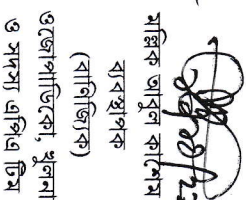 মল্লিক আবুল কাশেম
ব্যবস্থাপক
(বাণিজ্যিক)
ওজোপাডিকো, খুলনা
ও সদস্য এপিএ টিম